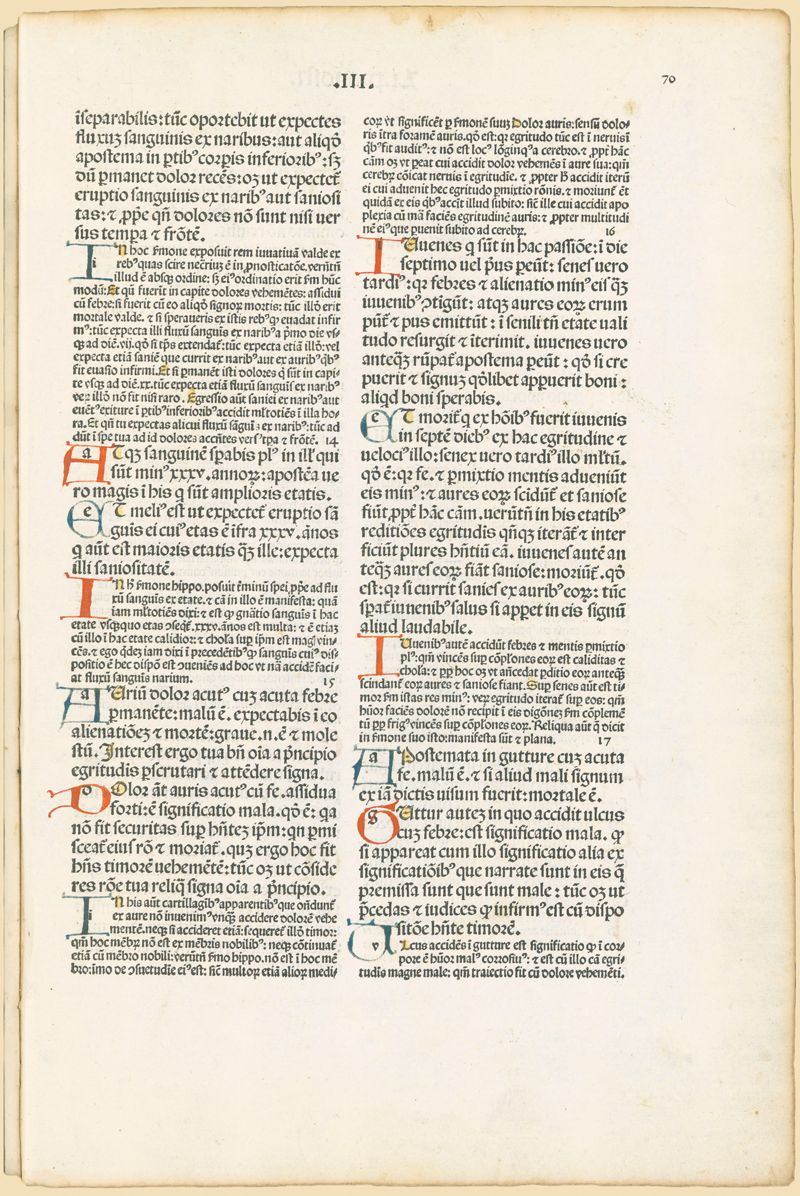 .III.
70
iseparabilis: tūc oportebit ut expectes
fluxuȝ sanguinis ex naribus: aut aliqđ
apostema in ꝑtib⁹ corꝑis inferiorib⁹: sȝ
dū ꝑmanet dolor recēs: oȝ ut expectet᷑
eruptio sanguinis ex narib⁹ aut saniosi
tas: ⁊ ꝓpe qñ dolores nō sunt nisi uer
sus tempa ⁊ frōtē.
In hoc ẜmone exposuit rem iuuatiuā valde ex
reb⁹ quas scire necr̄ius ē in ꝓnosticatōe. verūtñ
illud ē absqȝ ordine: sȝ ei⁹ ordinatio erit ẜm hūc
modū: Et qñ fuerit in capite dolores vehemētes: assidui
cū febre: si fuerit cū eo aliqđ signoꝝ mortis: tūc illđ erit
mortale valde. ⁊ si speraueris ex istis reb⁹ ꝙ euadat infir
m⁹: tūc expecta illi fluxū sanguīs ex narib⁹ a p̄mo die vs-
qȝ ad diē.vij. qđ si tp̄s extendat᷑: tūc expecta etiā illđ: vel
expecta etiā saniē que currit ex narib⁹ aut ex aurib⁹ q̇b⁹
fit euasio infirmi. Et si ꝑmanēt isti dolores q̄ sūt in capi-
te vsqȝ ad diē.xx. tūc expecta etiā fluxū sanguīs ex narib⁹
veꝝ illđ nō fit nisi raro. Egressio aūt saniei ex narib⁹ aut
euēt⁹ exiture ī ꝑtib⁹ inferiorib⁹ accidit ml̄totiēs ī illa ho-
ra. Et qñ tu expectas alicui fluxū sāguīs ex narib⁹: tūc ad
dūt ī spe tua ad id dolores accñtes vers⁹ tpa ⁊ frōtē. 14
Atqȝ sanguinē sꝑabis pl⁹ in ill᷑ qui
sūt min⁹ xxxv. annoꝝ: apostēa ue
ro magis ī his q̄ sūt amplioris etatis.
Et meli⁹ est ut expectet᷑ eruptio sā
guīs ei cui⁹ etas ē īfra xxxv. ānos
q̄ aūt est maioris etatis qȝ ille: expecta
illi saniositatē.
In ħ ẜmone hippo. posuit t̄minū spei ꝓpe ad flu
xū sanguīs ex etate. ⁊ cā in illo ē manifesta: quā
iam ml̄totiēs dixi: ⁊ est ꝙ gn̄atio sanguīs ī hac
etate vsqȝquo etas ꝯseq̄t᷑.xxxv. ānos est multa: ⁊ ē etiaȝ
cū illo ī hac etate calidior: ⁊ chol̄a suꝑ ip̄m est magis vin-
cēs. ⁊ ego q̇dez iam dixi ī precedētib⁹ ꝙ sanguīs cui⁹ dis-
positio ē hec dispōn est ꝯueniēs ad hoc vt nā accidēs faci-
at fluxū sanguīs narium. 15
Auriū dolor acut⁹ cuȝ acuta febre
ꝑmanēte: malū ē. expectabis ī eo
alienatiōeȝ ⁊ mortē: graue. n. ē ⁊ mole
stū. Interest ergo tua bñ oīa a p̄ncipio
egritudīs ꝑscrutari ⁊ attēdere signa.
Dolor āt auris acut⁹ cū fe. assidua
forti: ē significatio mala. qđ ē: qa
nō fit securitas suꝑ hn̄teȝ ip̄m: qn ꝑmi
sceat᷑ ei⁹ rō ⁊ moriat᷑. quȝ ergo hoc fit
hn̄s timorē uehemētē: tūc oȝ ut cōside
res rōe tua reliq̄ signa oīa a p̄ncipio.
In his aūt cartillagīb⁹ apparentib⁹ que oñdunt᷑
ex aure nō inuenim⁹ vnqȝ accidere dolorē vehe
mentē. neqȝ si accideret etiā: sequeret᷑ illđ timor:
qm̄ hoc mēbꝝ nō est ex mēbris nobilib⁹: neqȝ cōtinuat᷑
etiā cū mēbro nobili: verūtñ ẜmo hippo. nō est ī hoc mē
bro: īmo de ꝯsuetudīe ei⁹ est: sic̄ multoꝝ etiā alioꝝ medi-
coꝝ vt significēt ꝑ ẜmonē suuȝ Dolor auris: sensū dolo-
ris ītra foramē auris. qđ est: qꝛ egritudo tūc est ī neruis ī
q̇b⁹ fit audit⁹: ⁊ nō est loc⁹ lōginq⁹ a cerebro. ⁊ ꝓpt᷑ hāc
cām oȝ vt ꝑeat cui accidit dolor vehemēs ī aure sua: qm̄
cerebꝝ cōicat neruis ī egritudīe. ⁊ ꝓpter ħ accidit iterū
ei cui aduenit hec egritudo ꝑmixtio rōnis. ⁊ moriunt᷑ ēt
quidā ex eis q̇b⁹ acc̄it illud subito: sic̄ ille cui accidit apo
plexia cū mā faciēs egritudinē auris: ⁊ ꝓpter multitudi
nē ei⁹ que ꝑuenit subito ad cerebꝝ. 16
Iuuenes q̄ sūt in hac passiōe: ī die
septimo uel pri⁹ peūt: senes uero
tardi⁹: qꝛ febres ⁊ alienatio min⁹ eis qȝ
iuuenib⁹ ꝯtigūt: atqȝ aures eoꝝ erum
pūt᷑ ⁊ pus emittūt: ī senili tñ etate uali
tudo resurgit ⁊ īterimit. iuuenes uero
anteqȝ rūpat᷑ apostema peūt: qđ si cre
puerit ⁊ signuȝ qđlibet apꝑuerit boni:
aliqd boni sperabis.
Et morit᷑ q̄ ex hōib⁹ fuerit iuuenis
in septē dieb⁹ ex hac egritudine ⁊
ueloci⁹ illo: senex uero tardi⁹ illo ml̄tū.
qđ ē: qꝛ fe. ⁊ ꝑmixtio mentis adueniūt
eis min⁹: ⁊ aures eoꝝ scidūt᷑ et saniose
fiūt, ꝓpt᷑ hāc cām. uerūtñ in his etatib⁹
reditiōes egritudīs qñqȝ iterāt᷑ ⁊ inter
ficiūt plures hn̄tiū eā. iuuenes autē an
teqȝ aures eoꝝ fiāt saniose: moriūt᷑. qđ
est: qꝛ si currit sanies ex aurib⁹ eoꝝ: tūc
sꝑat᷑ iuuenib⁹ salus si apꝑet in eis signū
aliud laudabile.
Iuuenib⁹ autē accidūt febres ⁊ mentis ꝑmixtio
pl⁹: qm̄ vincēs suꝑ cōplōnes eoꝝ est caliditas ⁊
chol̄a: ⁊ ꝓp̄ hoc oȝ vt āñcedat ꝑditio eoꝝ anteqȝ
scindant᷑ eoꝝ aures ⁊ saniose fiant. Suꝑ senes aūt est ti-
mor ẜm istas res min⁹: veꝝ egritudo iterat᷑ suꝑ eos: qm̄
hūor faciēs dolorē nō recipit ī eis digōneȝ ẜm cōplemē
tū ꝓp̄ frig⁹ vincēs suꝑ cōplōnes eoꝝ. Reliqua aūt q̄ dicit
in ẜmone suo isto: manifesta sūt ⁊ plana. 17
Apostemata in gutture cuȝ acuta
fe. malū ē. ⁊ si aliud mali signum
ex iā dictis uisum fuerit: mortale ē.
Guttur auteȝ in quo accidit ulcus
cuȝ febre: est significatio mala. ꝙ
si appareat cum illo significatio alia ex
significatiōib⁹ que narrate sunt in eis q̄
premissa sunt que sunt male: tūc oȝ ut
p̄cedas ⁊ iudices ꝙ infirm⁹ est cū dispo
sitōe hn̄te timorē.
Vlcus accidēs ī gutture est significatio ꝙ ī cor-
pore ē hūor mal⁹ corrosiu⁹: ⁊ est cū illo cā egri-
tudīs magne male: qm̄ traiectio fit cū dolore vehemēti.